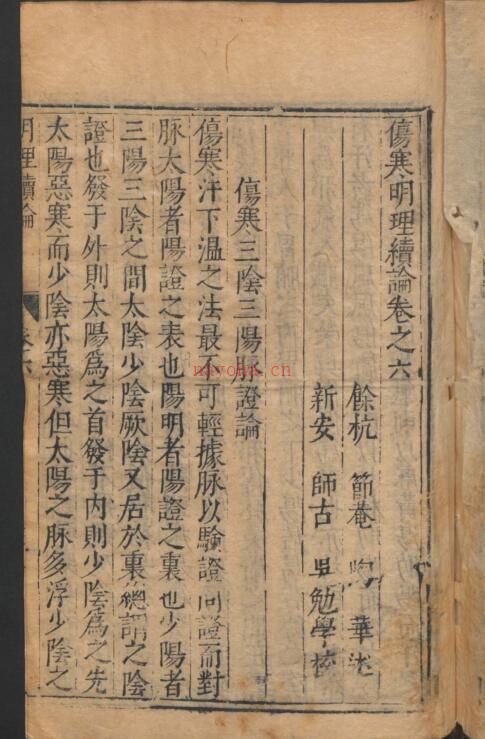 傷寒明理續論卷之六
餘杭 節菴 陶 華 述
新安 師古 吳勉學 校
傷寒三陰三陽脉證論
傷寒汗下溫之法最不可輕據脉以驗證問證而對
脉太陽者陽證之表也陽明者陽證之裏也少陽者
三陽三陰之間太陰少陰厥陰又居於裏總謂之陰
證也發于外則太陽爲之首發于内則少陰爲之先
太陽惡寒而少陰亦惡寒但太陽之脉多浮少陰之
明理續論
卷六
nayona.cn